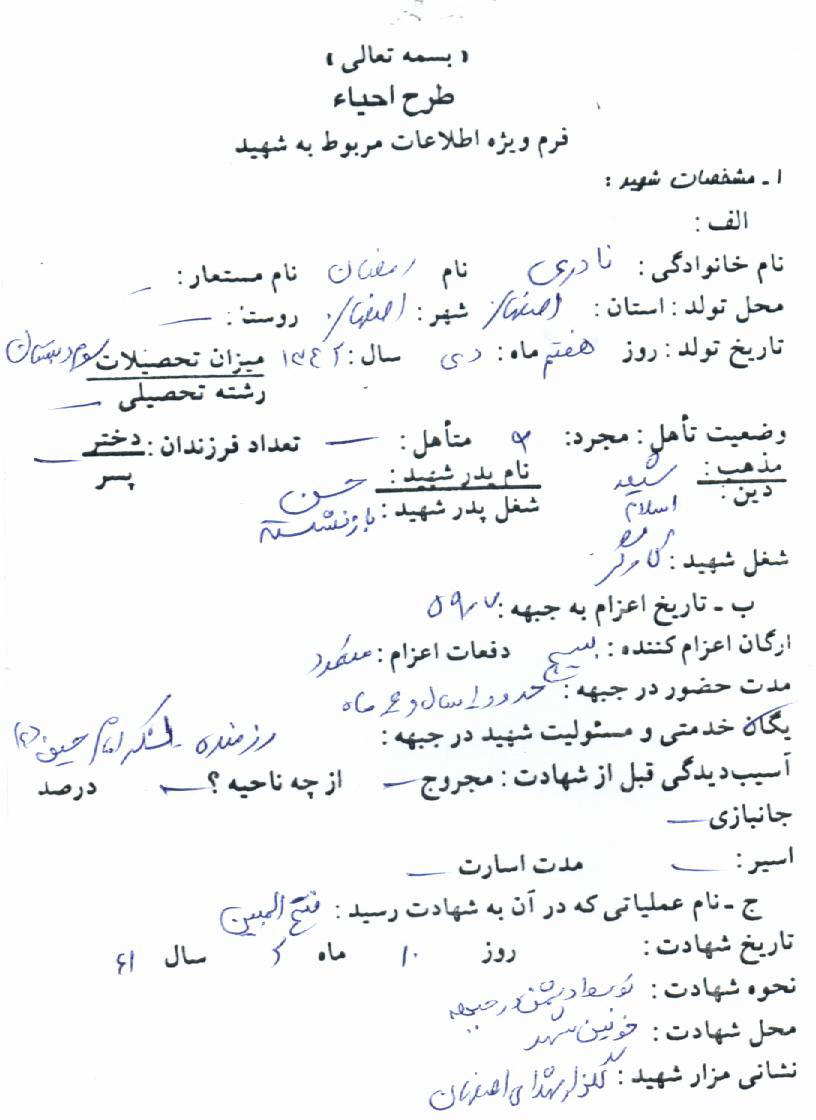 ( بسمه تعالی )
طرح احیاء
فرم ویژه اطلاعات مربوط به شهید
۱ ـ مشخصات شهید :
الف :
نام خانوادگی : نادری نام رمضان نام مستعار : ـ
محل تولد : استان : اصفهان شهر : اصفهان روستا : ـ
تاریخ تولد : روز هفتم ماه : دی سال : ۱۳۴۲ میزان تحصیلات سوم دبستان
رشته تحصیلی ـ
وضعیت تأهل : مجرد: متأهل : ـ تعداد فرزندان : دختر ـ
پسر
مذهب : شیعه نام پدر شهید : حسن
دین : اسلام شغل پدر شهید : بازنشسته
شغل شهید : کارگر
ب ـ تاریخ اعزام به جبهه : ۵۹،۷
ارگان اعزام کننده : بسیج دفعات اعزام :
مدت حضور در جبهه : حدود ۱ سال و ۶ ماه
یگان خدمتی و مسئولیت شهید در جبهه : رزمنده لشکر امام حسین (ع)
آسیب‌دیدگی قبل از شهادت : مجروح ـ از چه ناحیه ؟ ـ درصد
جانبازی ـ
اسیر : ـ مدت اسارت ـ
ج ـ نام عملیاتی که در آن به شهادت رسید : فتح المبین
تاریخ شهادت : روز ۱۰ ماه ۲ سال ۶۱
نحوه شهادت : توسط دشمن در جبهه
محل شهادت : خونین شهر
نشانی مزار شهید : گلزار شهدای اصفهان